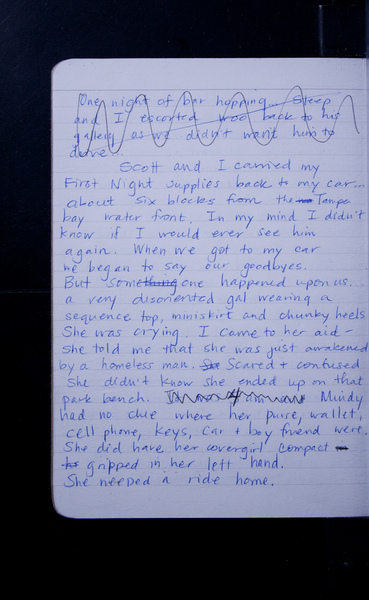 One night of bar hopping... Sleep
and I escorted Woo back to his
gallery as we didn't want him to
drive...
Scott and I carried my
First Night supplies back to my car...
about six blocks from the Tampa
bay water front. In my mind I didn't
know if I would ever see him
again. When we got to my car
we began to say our goodbyes.
But something one happened upon us...
a very disoriented gal wearing a
sequence top, miniskirt and chunky heels
She was crying. I came to her aid -
she told me that she was just awakened
by a homeless man. She Scared + confused
She didn't know she ended up on that
park bench. Mindy
had no clue where her purse, wallet,
cell phone, keys, car + boy friend were.
She did have her covergirl compact
gripped in her left hand.
She needed a ride home.